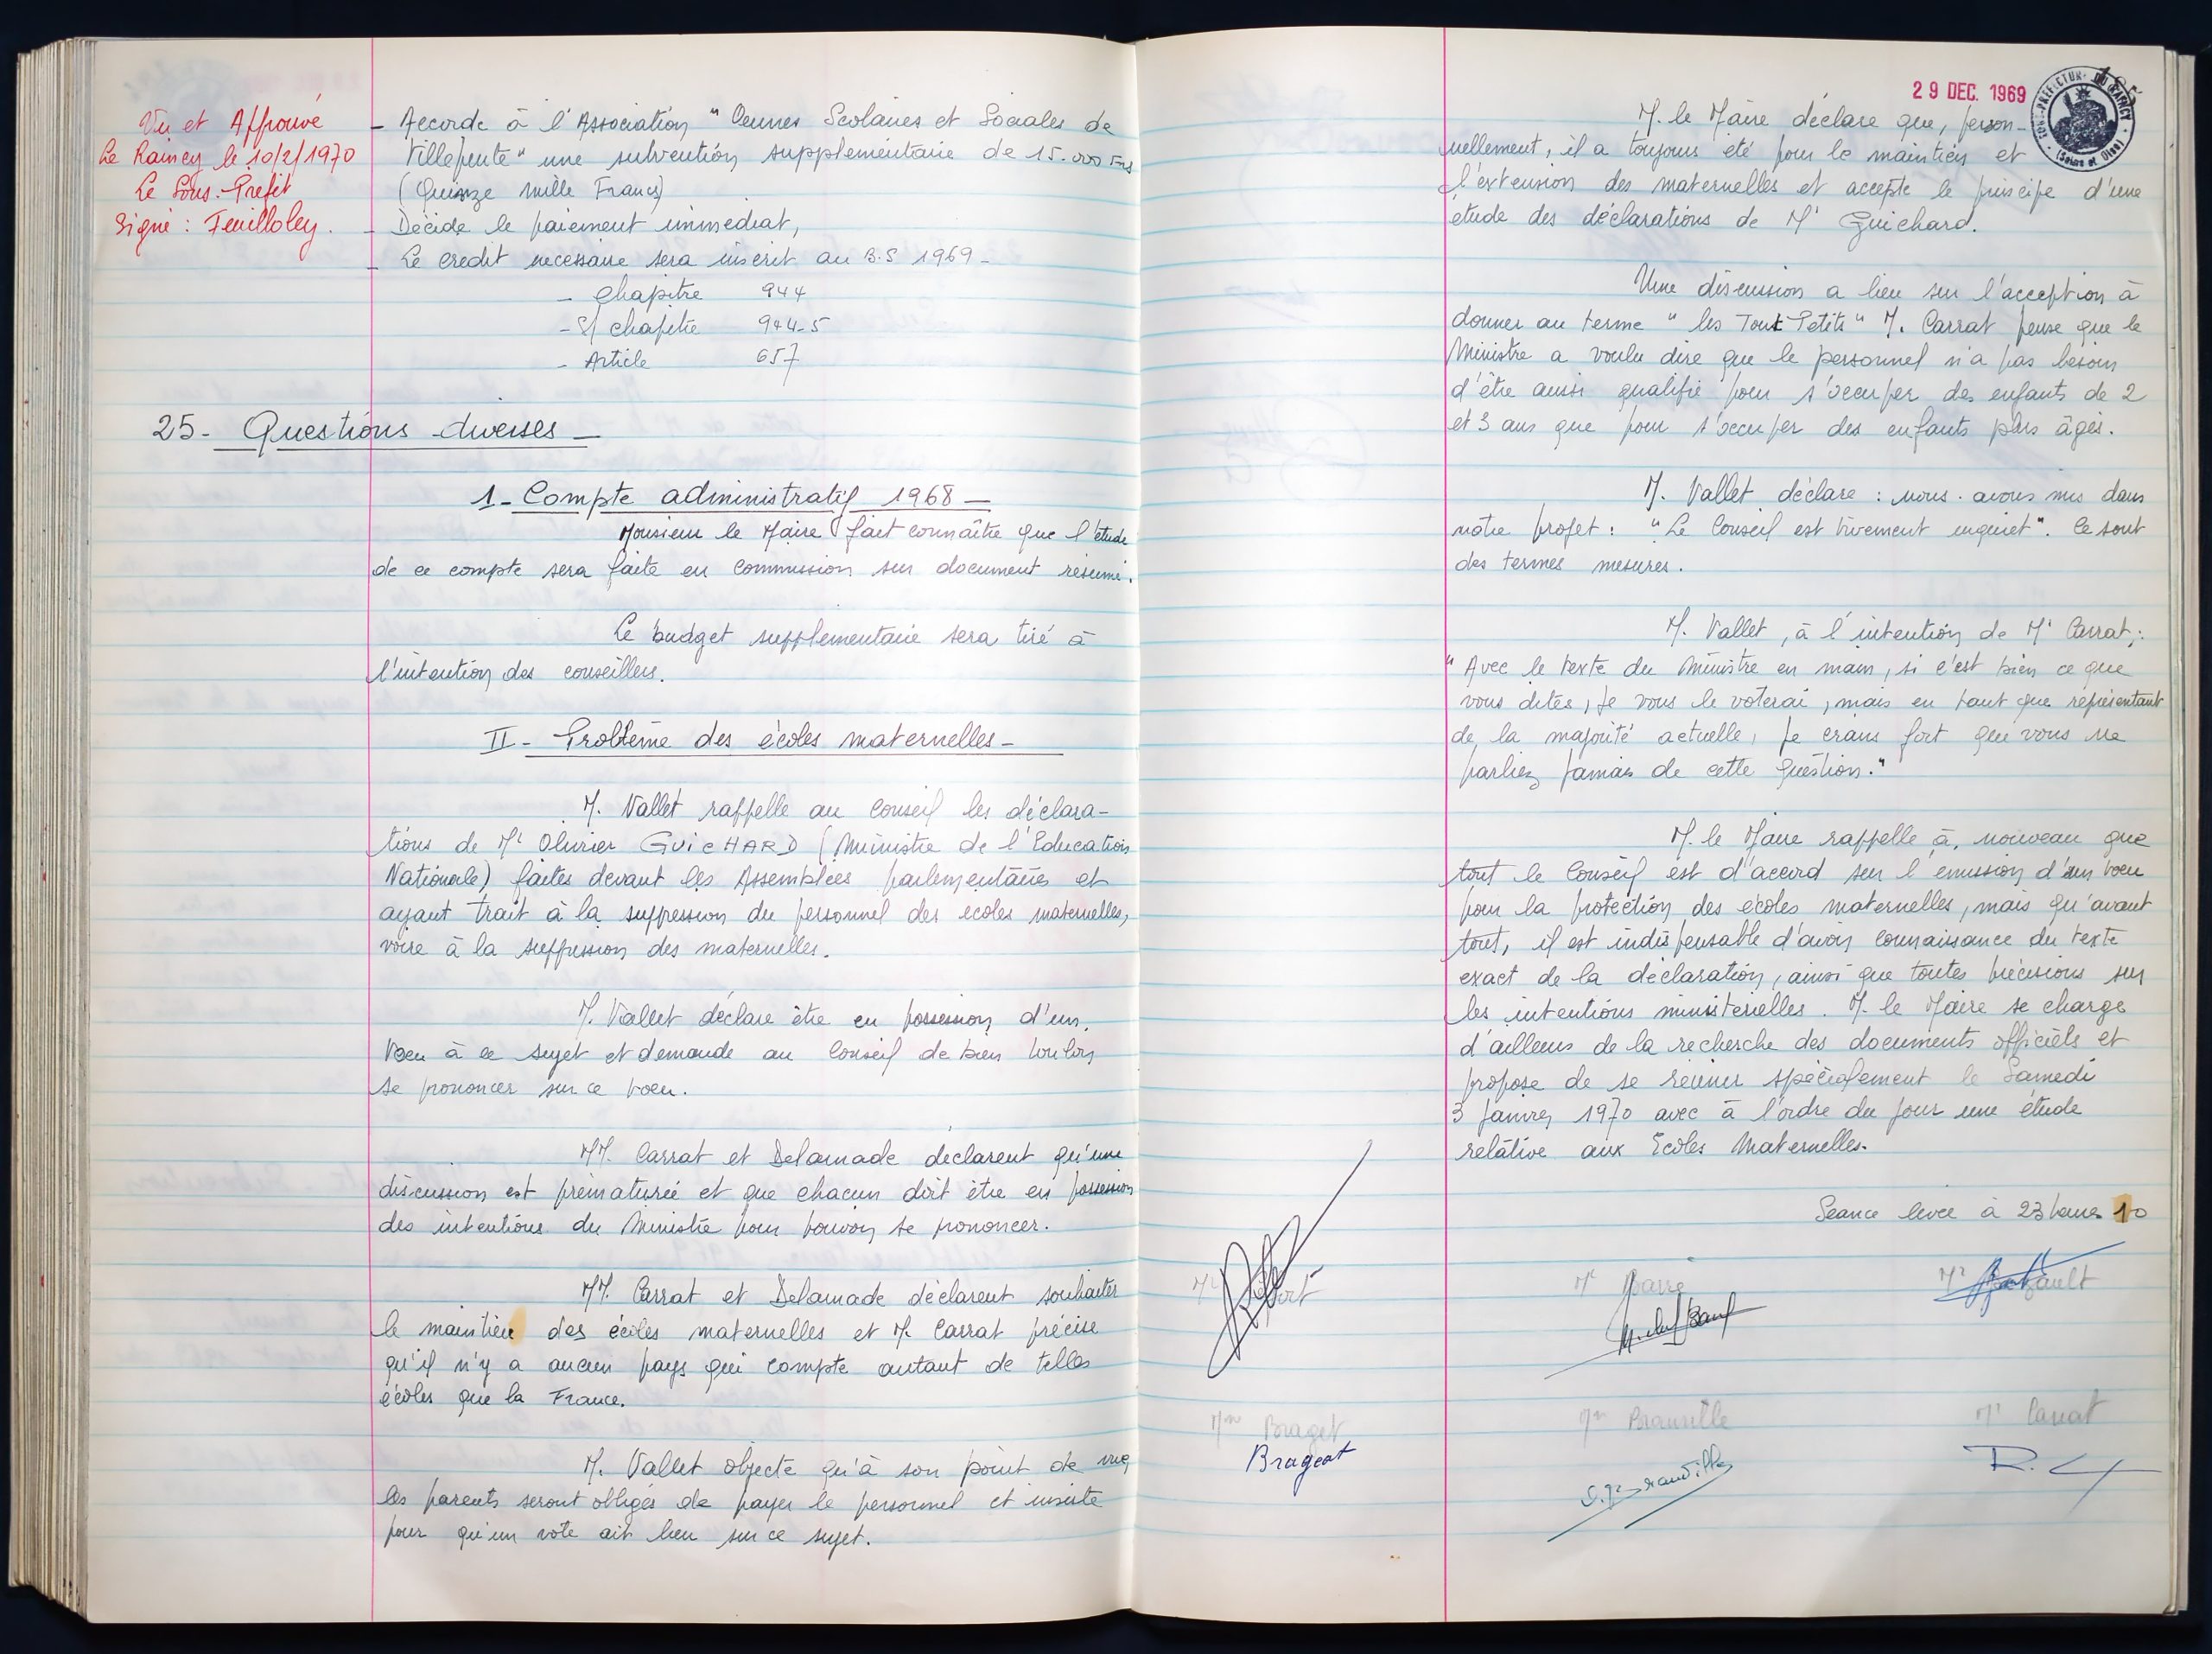 Vu et Approuvé
Le Raincy le 10/2/1970
Le Sous-Préfet
Signé : Feuilloley.
- Accorde à l'Association "Oeuvres Scolaires et Sociales de
Villepinte" une subvention supplémentaire de 15.000 Frs
(Quinze mille Francs)
- Décide le paiement immédiat,
- Le crédit nécessaire sera inscrit au B.S 1969 -
- Chapitre 944
- S/ chapitre 944-5
- Article 657
25 - Questions diverses -
1 - Compte administratif 1968 -
Monsieur le Maire fait connaître que l'étude
de ce compte sera faite en commission sur document résumé.
Le budget supplémentaire sera tiré à
l'intention des conseillers.
II - Problème des écoles maternelles -
M. Vallet rappelle au Conseil les déclara-
tions de Mr Olivier GUICHARD (Ministre de l'Education
Nationale) faites devant les Assemblées parlementaires et
ayant trait à la suppression du personnel des écoles maternelles,
voire à la suppression des maternelles.
M. Vallet déclare être en possession d'un
Voeu à ce sujet et demande au Conseil de bien vouloir
se prononcer sur ce voeu.
MM. Carrat et Delamade déclarent qu'une
discussion est prématurée et que chacun doit être en possession
des intentions du Ministre pour pouvoir se prononcer.
MM. Carrat et Delamade déclarent souhaiter
le maintien des écoles maternelles et M. Carrat précise
qu'il n'y a aucun pays qui compte autant de telles
écoles que la France.
M. Vallet objecte qu'à son point de vue,
les parents seront obligés de payer le personnel et insiste
pour qu'un vote ait lieu sur ce sujet.
29 DEC. 1969
SOUS-PRÉFECTURE DU RAINCY
(Seine et Oise)
M. le Maire déclare que, person-
nuellement, il a toujours été pour le maintien et
l'extension des maternelles et accepte le principe d'une
étude des déclarations de Mr Guichard.
Une discussion a lieu sur l'acception à
donner au terme "les Tout Petits" M. Carrat pense que le
Ministre a voulu dire que le personnel n'a pas besoin
d'être aussi qualifié pour s'occuper des enfants de 2
et 3 ans que pour s'occuper des enfants plus âgés.
M. Vallet déclare : nous avons mis dans
notre projet : "Le Conseil est vivement inquiet". Ce sont
des termes mesurés.
M. Vallet, à l'intention de Mr Carrat ;
"Avec le texte du Ministre en main, si c'est bien ce que
vous dites, je vous le voterai, mais en tant que représentant
de la majorité actuelle, je crains fort que vous ne
parliez jamais de cette question."
M. le Maire rappelle à nouveau que
tout le Conseil est d'accord sur l'émission d'un voeu
pour la protection des écoles maternelles, mais qu'avant
tout, il est indispensable d'avoir connaissance du texte
exact de la déclaration, ainsi que toutes précisions sur
les intentions ministérielles. M. le Maire se charge
d'ailleurs de la recherche des documents officiels et
propose de se réunir spécialement le Samedi
3 janvier 1970 avec à l'ordre du jour une étude
relative aux Ecoles Maternelles.
Séance levée à 23 heures 10
Mr Barré
Mme Braget
Brageot
Mme Branville
Mr Carrat
R. C